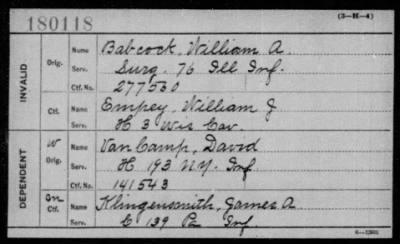 180118
(3-H-4)
INVALID
Orig.
Name Babcock, William A.
Serv. Surg. 76 Ill Inf.
Ctf. No. 277530
Ctf.
Name Empey, William J
Serv. H 3 Wis Cav.
DEPENDENT
W
Orig.
Name Van Camp, David
Serv. H 193 N.Y. Inf
Ctf. No. 141543
Ctf.
Name Klingensmith, James A
Serv. C 139 Pa Inf